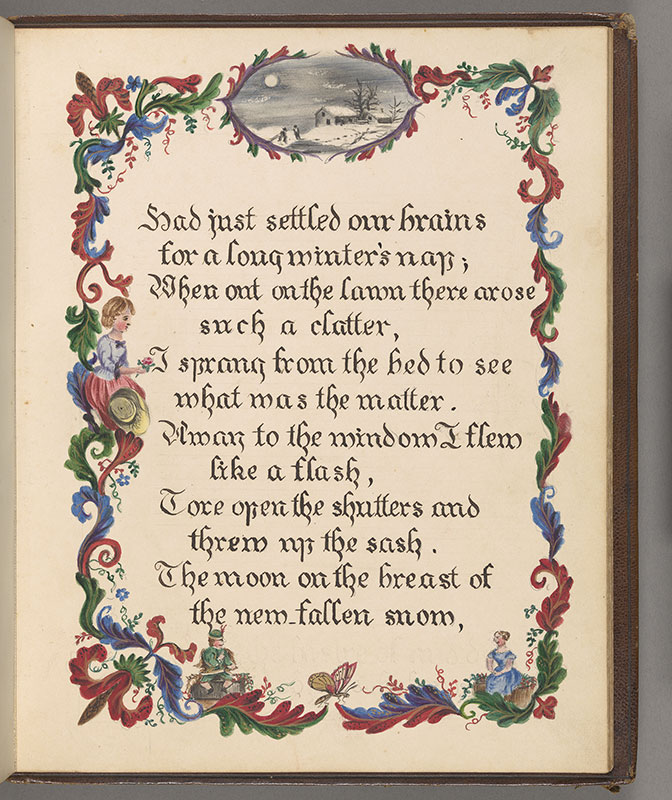 Had just settled our brains
for a long winter's nap;
When out on the lawn there arose
such a clatter,
I sprang from the bed to see
what was the matter.
Away to the window I flew
like a flash,
Tore open the shutters and
threw up the sash.
The moon on the breast of
the new-fallen snow,